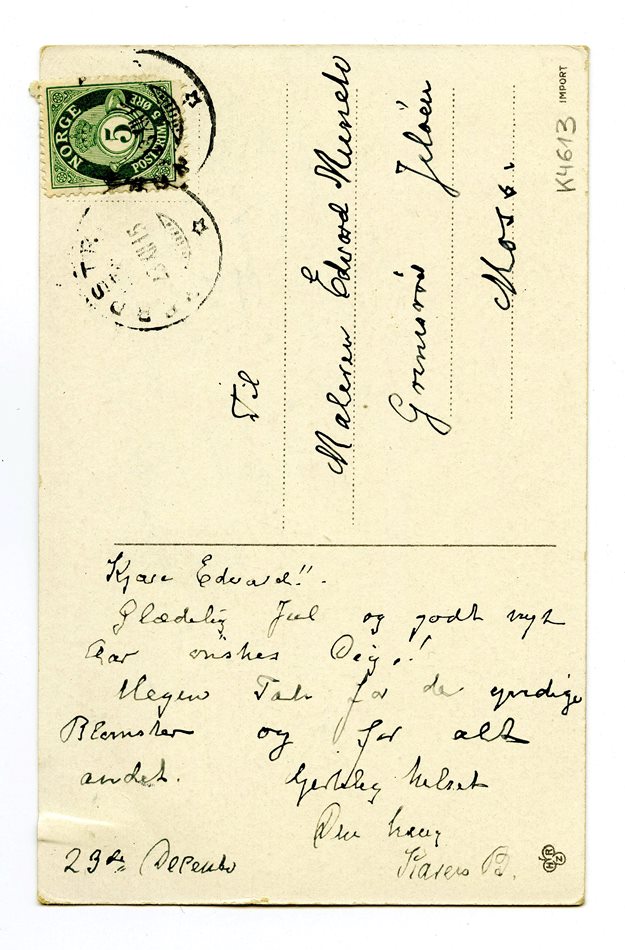 NORGE
5
5 ØRE
POSTFRIM
23 XII 15
Til
Maleren Edvard Munch
Grimsrød Jeløen
Moss.
K4613
IMPORT
Kjære Edvard!!
Glædelig Jul og godt nyt
Aar ønskes Dig,!
Megen Tak for de yndige
Blomster og for alt
andet. Hjertelig hilset
Din
Karen B.
23de December
H R Z